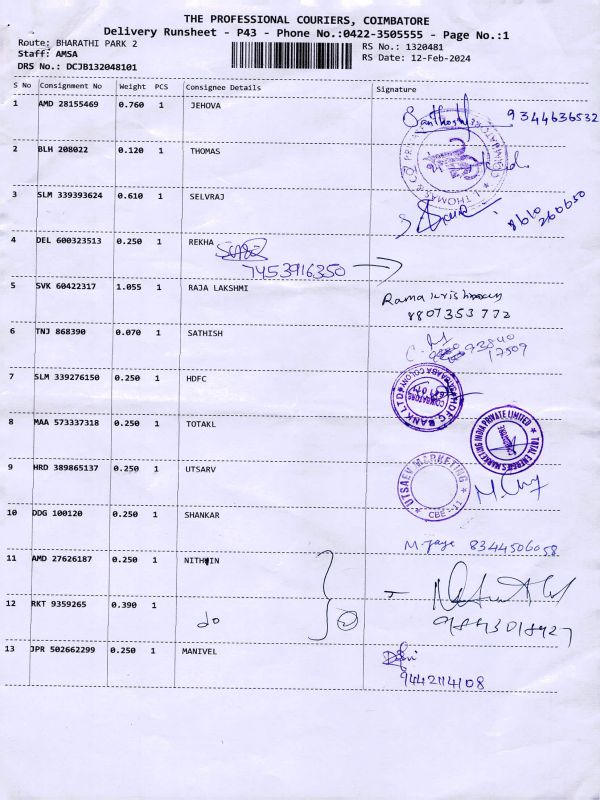 THE PROFESSIONAL COURIERS, COIMBATORE
Delivery Runsheet - P43 - Phone No.:0422-3505555 - Page No.:1
Route: BHARATHI PARK 2
RS No.: 1320481
Staff: AMSA
RS Date: 12-Feb-2024
DRS No.: DCJB132048101
S No Consignment No Weight PCS Consignee Details Signature
1 AMD 28155469 0.760 1 JEHOVA
Santhosh 9344636532
2 BLH 208022 0.120 1 THOMAS
THOMAS & CO
3 SLM 339393624 0.610 1 SELVRAJ
4 DEL 600323513 0.250 1 REKHA
7453916350
5 SVK 60422317 1.055 1 RAJA LAKSHMI
Ramakrishnan
8807353772
6 TNJ 868390 0.070 1 SATHISH
7 SLM 339276150 0.250 1 HDFC
HDFC BANK LTD
8 MAA 573337318 0.250 1 TOTAKL
TOTAL ENERGIES MARKETING INDIA PRIVATE LIMITED
9 HRD 389865137 0.250 1 UTSARV
UTSAEV MARKETING
CBE-11
10 DDG 100120 0.250 1 SHANKAR
M. Jaya 8344506058
11 AMD 27626187 0.250 1 NITHIN
12 RKT 9359265 0.390 1
do
13 JPR 502662299 0.250 1 MANIVEL
9442114108